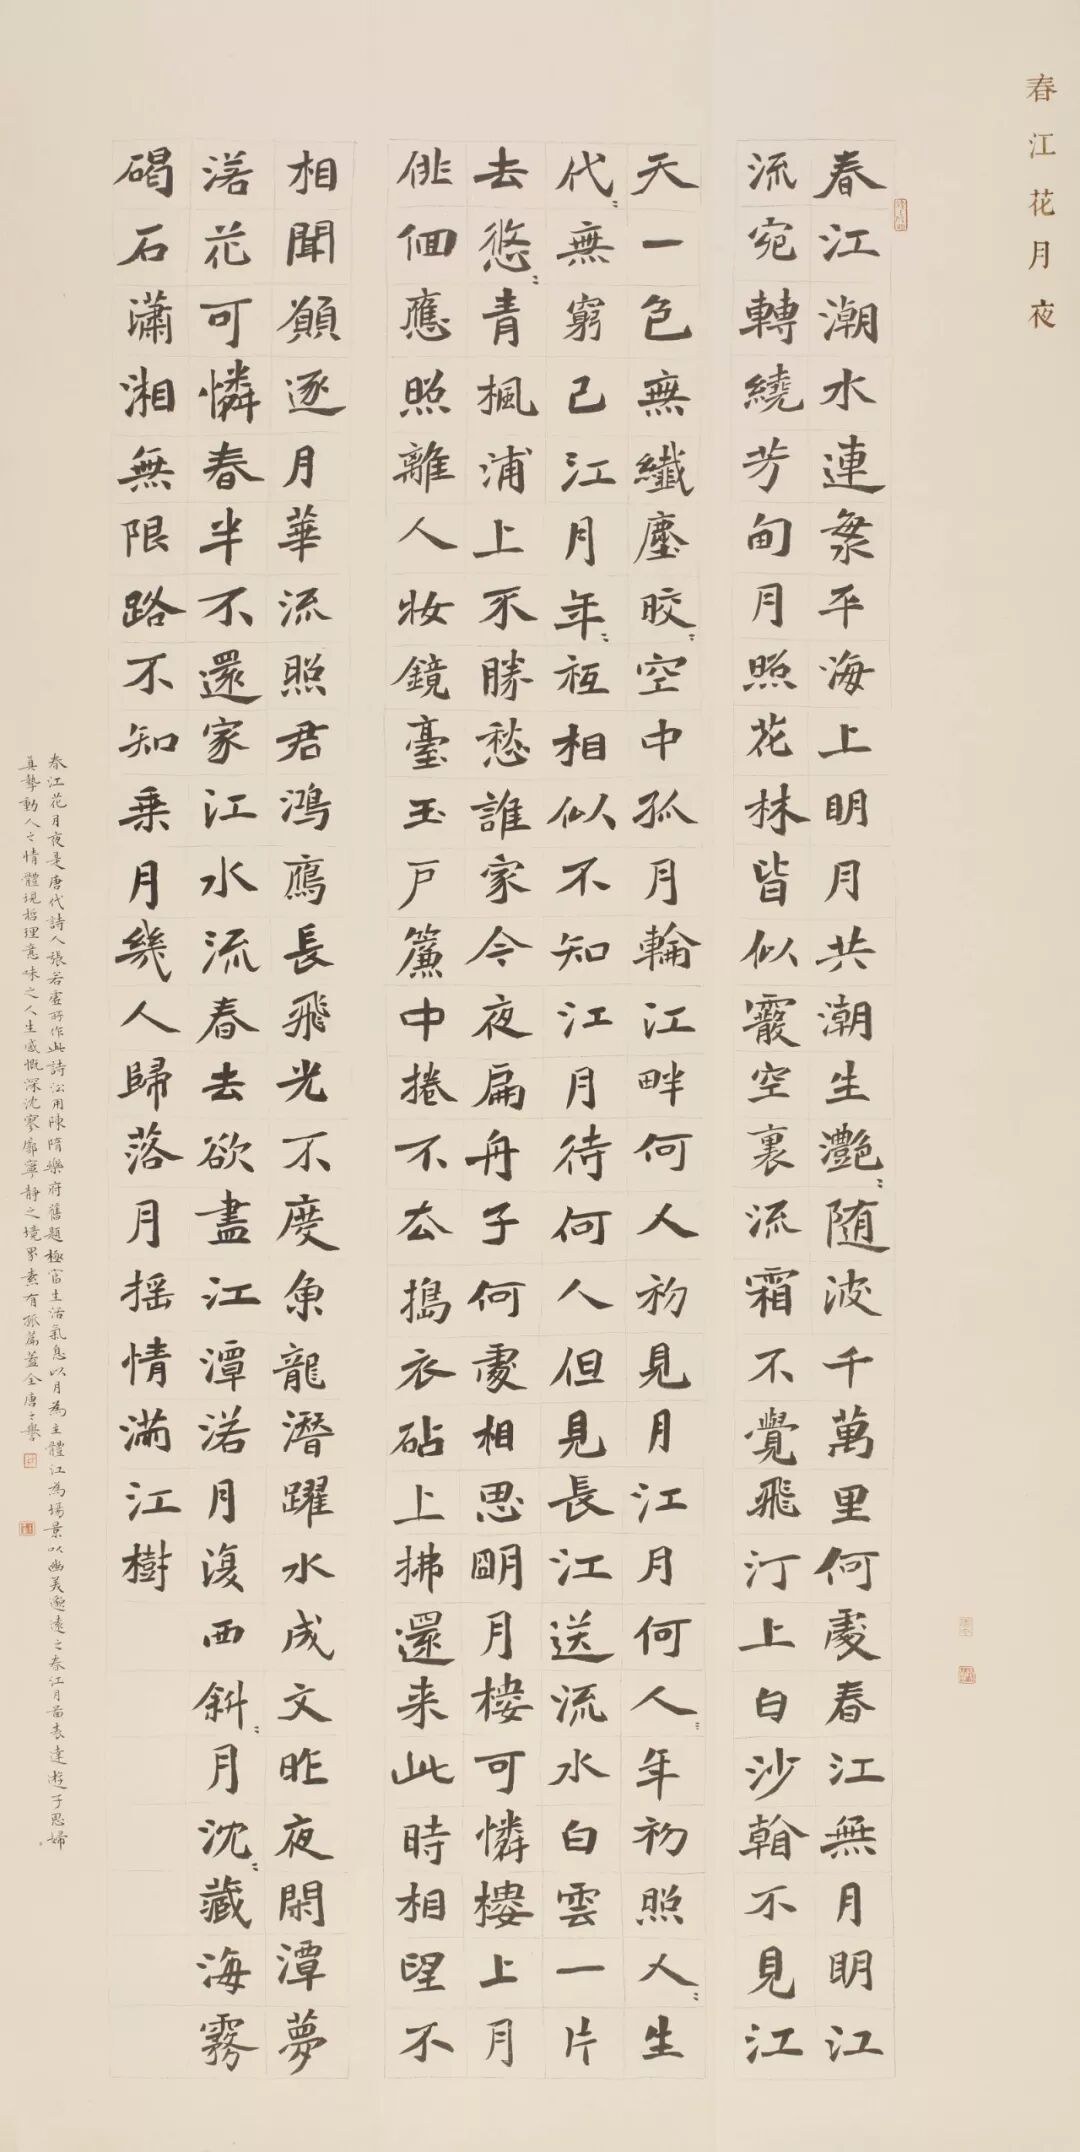 春江花月夜
春江潮水連海平海上眀月共潮生灩〻随波千萬里何處春江無月眀江
流宛轉繞芳甸月照花林皆似霰空裏流霜不覺飛汀上白沙翰不見江
天一色無纖塵皎〻空中孤月輪江畔何人初見月江月何人〻年初照人〻生
代〻無窮已江月年〻衹相似不知江月待何人但見長江送流水白雲一片
去悠〻青楓浦上不勝愁誰家今夜扁舟子何處相思眀月樓可憐樓上月
俳佪應照離人妝鏡臺玉戶簾中捲不去搗衣砧上拂還来此時相望不
相聞願逐月華流照君鴻鴈長飛光不度魚龍潛躍水成文昨夜閑潭夢
落花可憐春半不還家江水流春去欲盡江潭落月復西斜〻月沈〻藏海霧
碣石瀟湘無限路不知乗月幾人歸落月摇情滿江樹
春江花月夜是唐代詩人張若虛所作此詩沿用陳隋樂府舊題極富生活氣息以月為主體江為場景以幽美邈遠之春江月圖表達遊子思婦
真摯動人之情體現哲理意味之人生感慨深沈寥廓寧静之境界素有孤篇蓋全唐之譽